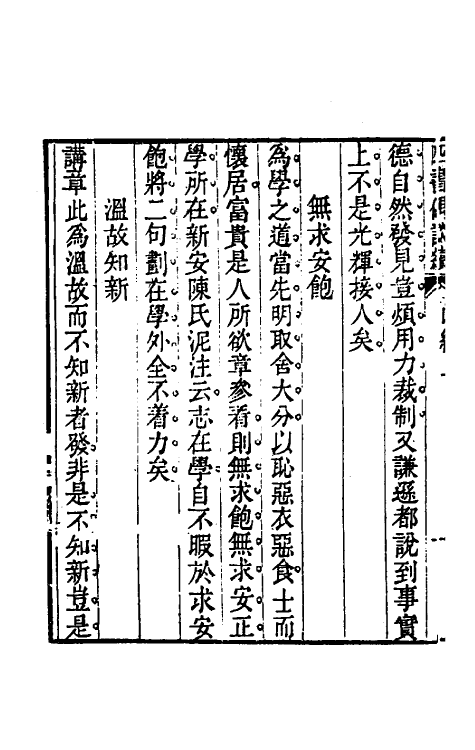 德自然發見豈煩用力裁制又謙遜都說到事實
上不是光輝接人矣
無求安飽
為學之道當先明取舍大分以恥惡衣惡食士而
懷居富貴是人所欲章參看則無求飽無求安正
學所在新安陳氏泥注云志在學自不暇於求安
飽將二句劃在學外全不着力矣
溫故知新
講章此為溫故而不知新者發非是不知新豈是